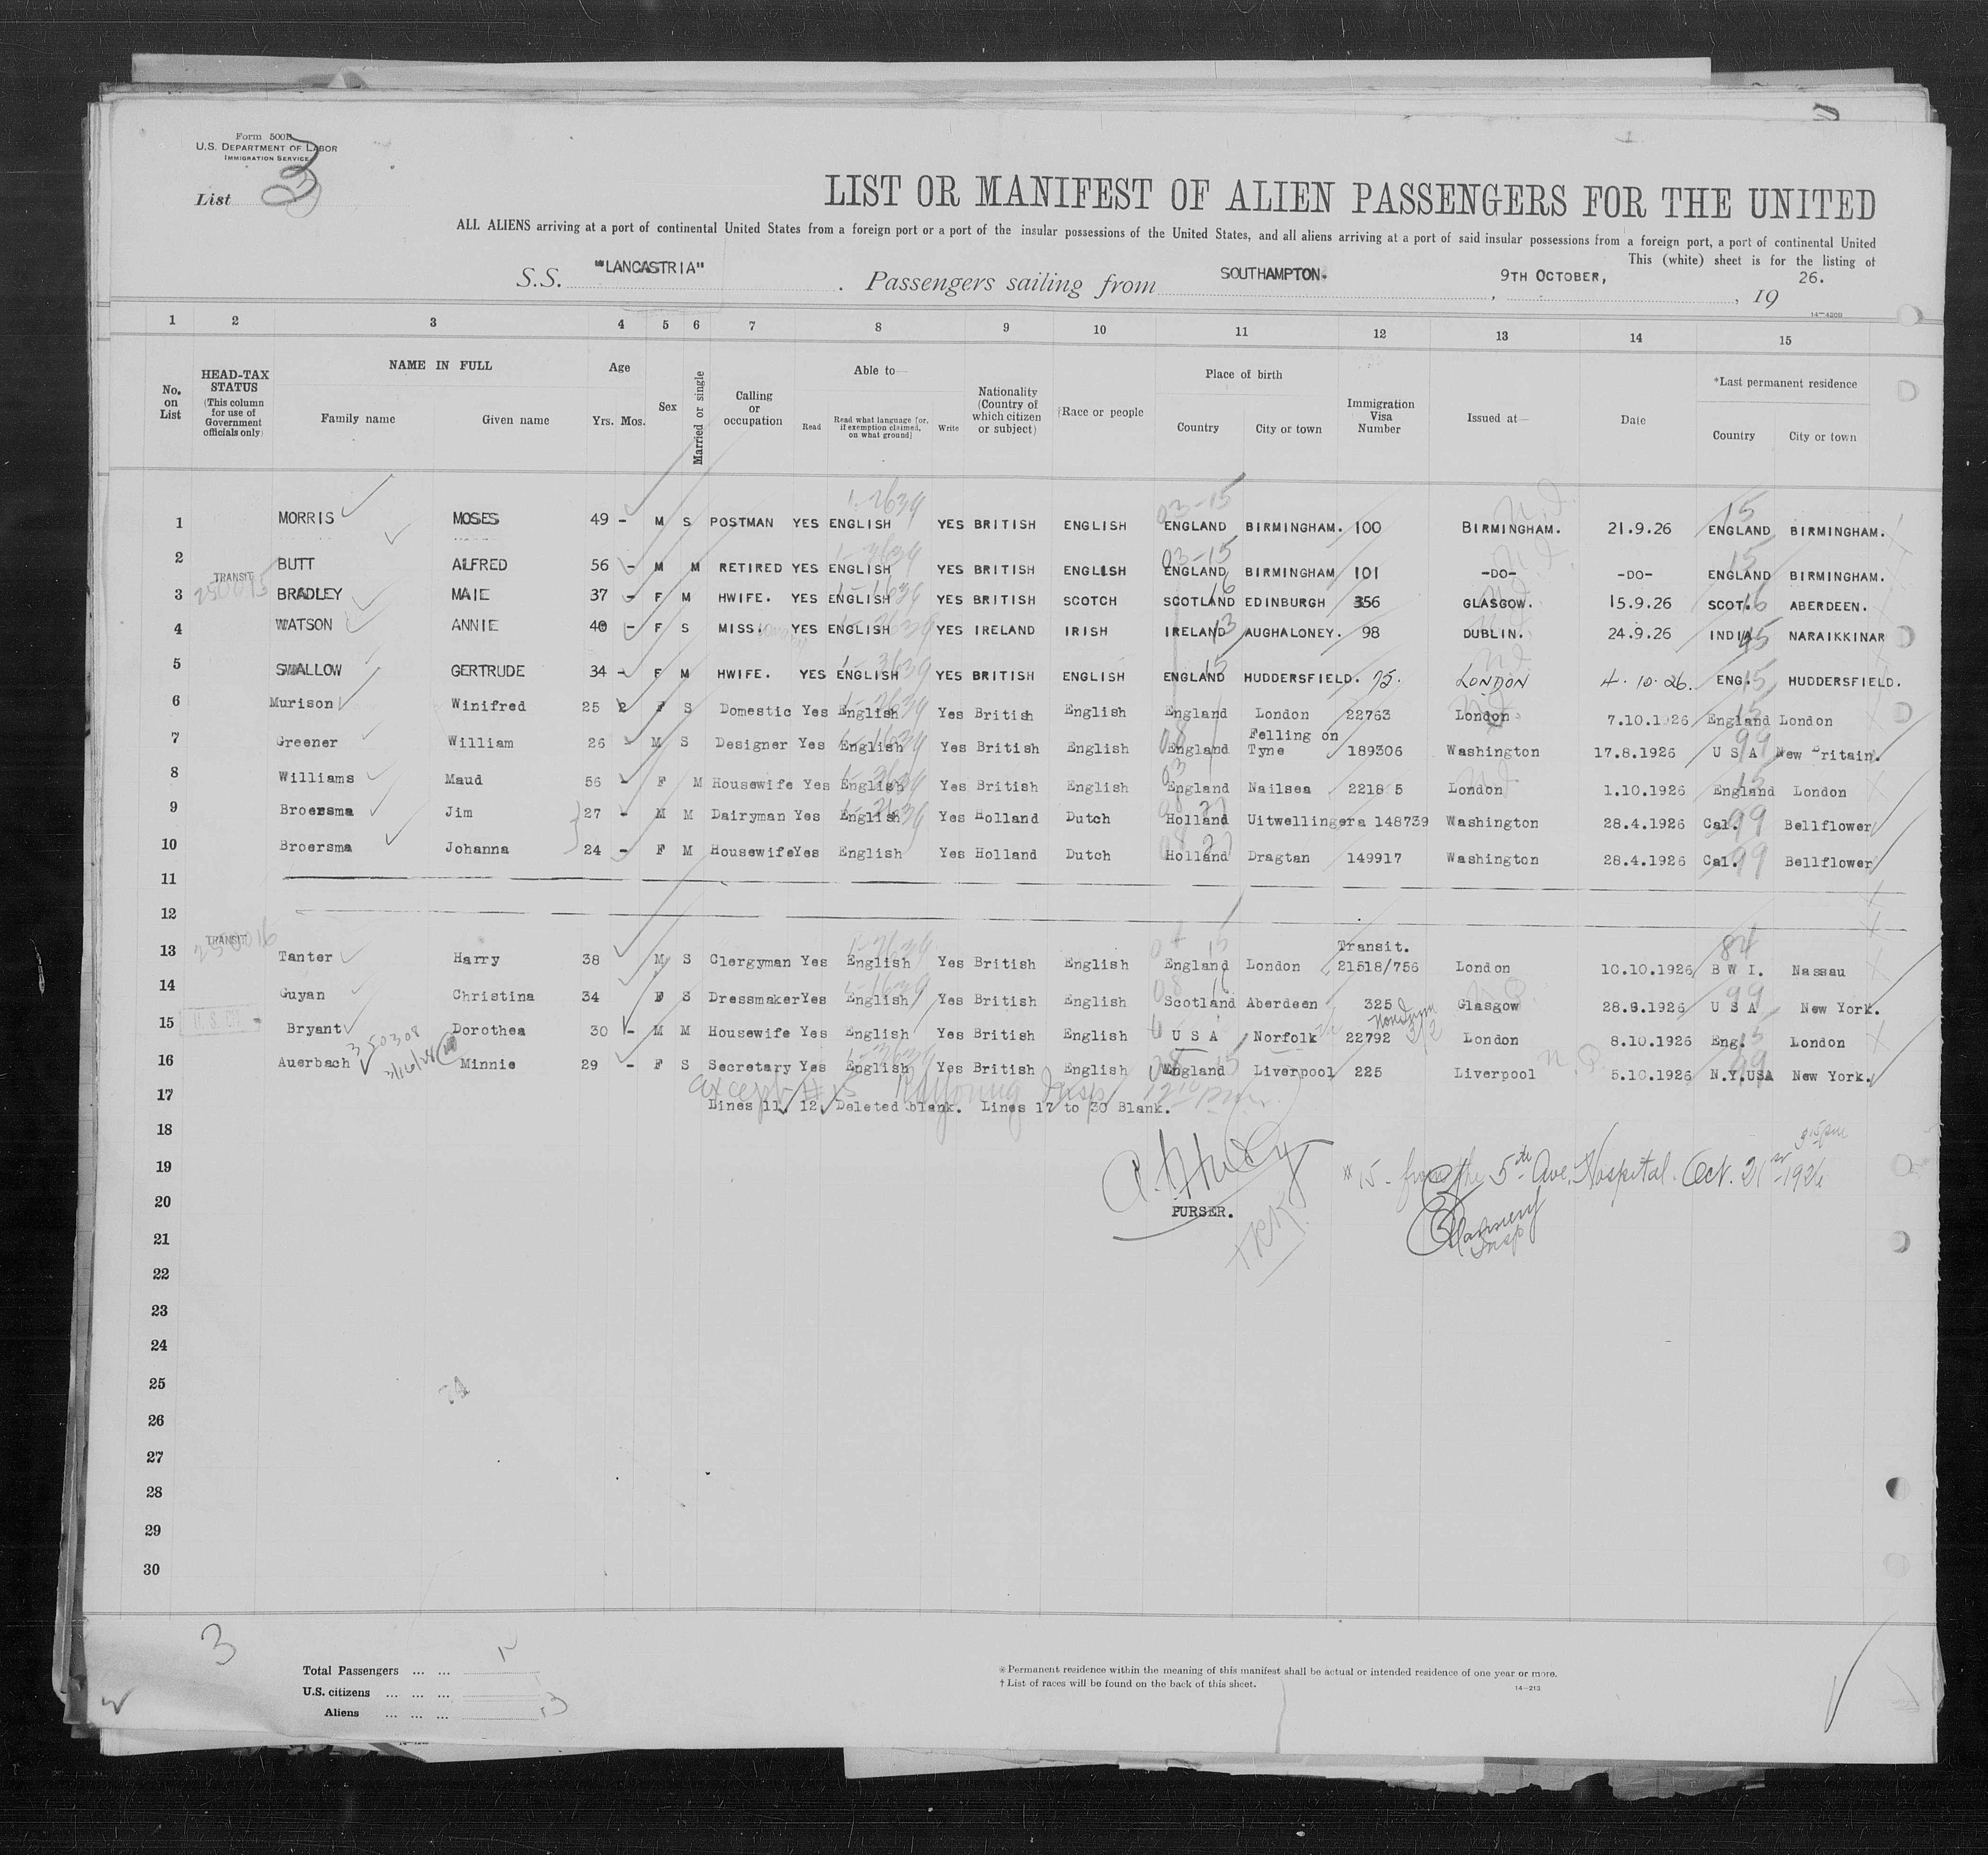 Form 500B
U.S. DEPARTMENT OF LABOR
IMMIGRATION SERVICE
List 3
LIST OR MANIFEST OF ALIEN PASSENGERS FOR THE UNITED
ALL ALIENS arriving at a port of continental United States from a foreign port or a port of the insular possessions of the United States, and all aliens arriving at a port of said insular possessions from a foreign port, a port of continental United
This (white) sheet is for the listing of
S.S. "LANCASTRIA". Passengers sailing from SOUTHAMPTON. , 9TH OCTOBER, , 19 26.
14—4200
1 2 3 4 5 6 7 8 9 10 11 12 13 14 15
No. on List
HEAD-TAX STATUS (This column for use of Government officials only)
NAME IN FULL Family name Given name
Age Yrs. Mos.
Sex
Married or single
Calling or occupation
Able to— Read Read what language [or, if exemption claimed, on what ground] Write
Nationality (Country of which citizen or subject)
†Race or people
Place of birth Country City or town
Immigration Visa Number
Issued at—
Date
*Last permanent residence Country City or town
1 MORRIS MOSES 49 - M S POSTMAN YES ENGLISH YES BRITISH ENGLISH ENGLAND BIRMINGHAM. 100 BIRMINGHAM. 21.9.26 ENGLAND BIRMINGHAM.
2 BUTT ALFRED 56 - M M RETIRED YES ENGLISH YES BRITISH ENGLISH ENGLAND BIRMINGHAM 101 -DO- -DO- ENGLAND BIRMINGHAM.
TRANSIT
3 BRADLEY MAIE 37 - F M HWIFE. YES ENGLISH YES BRITISH SCOTCH SCOTLAND EDINBURGH 356 GLASGOW. 15.9.26 SCOT. ABERDEEN.
4 WATSON ANNIE 40 - F S MISS. YES ENGLISH YES IRELAND IRISH IRELAND AUGHALONEY. 98 DUBLIN. 24.9.26 INDIA NARAIKKINAR
5 SWALLOW GERTRUDE 34 - F M HWIFE. YES ENGLISH YES BRITISH ENGLISH ENGLAND HUDDERSFIELD. 75. LONDON 4.10.26. ENG. HUDDERSFIELD.
6 Murison Winifred 25 2 F S Domestic Yes English Yes British English England London 22763 London 7.10.1926 England London
7 Greener William 26 - M S Designer Yes English Yes British English England Felling on Tyne 189306 Washington 17.8.1926 U S A New Britain.
8 Williams Maud 56 - F M Housewife Yes English Yes British English England Nailsea 2218 5 London 1.10.1926 England London
9 Broersma Jim 27 - M M Dairyman Yes English Yes Holland Dutch Holland Uitwellingera 148739 Washington 28.4.1926 Cal. Bellflower
10 Broersma Johanna 24 - F M Housewife Yes English Yes Holland Dutch Holland Dragtan 149917 Washington 28.4.1926 Cal. Bellflower
11
12
TRANSIT
Transit.
13 Tanter Harry 38 M S Clergyman Yes English Yes British English England London 21518/756 London 10.10.1926 B W I. Nassau
14 Guyan Christina 34 F S Dressmaker Yes English Yes British English Scotland Aberdeen 325 Glasgow 28.9.1926 U S A New York.
15 Bryant Dorothea 30 - M M Housewife Yes English Yes British English U S A Norfolk 22792 London 8.10.1926 Eng. London
16 Auerbach Minnie 29 - F S Secretary Yes English Yes British English England Liverpool 225 Liverpool 5.10.1926 N.Y.USA New York.
17 Lines 11/ 12. Deleted blank. Lines 17 to 30 Blank.
18
19 #15 - from the 5th Ave. Hospital. Oct. 21st 1926
20 PURSER.
21
22
23
24
25
26
27
28
29
30
3
Total Passengers ... ...
U.S. citizens ... ... ...
Aliens ... ... ... 13
* Permanent residence within the meaning of this manifest shall be actual or intended residence of one year or more.
† List of races will be found on the back of this sheet.
14—213